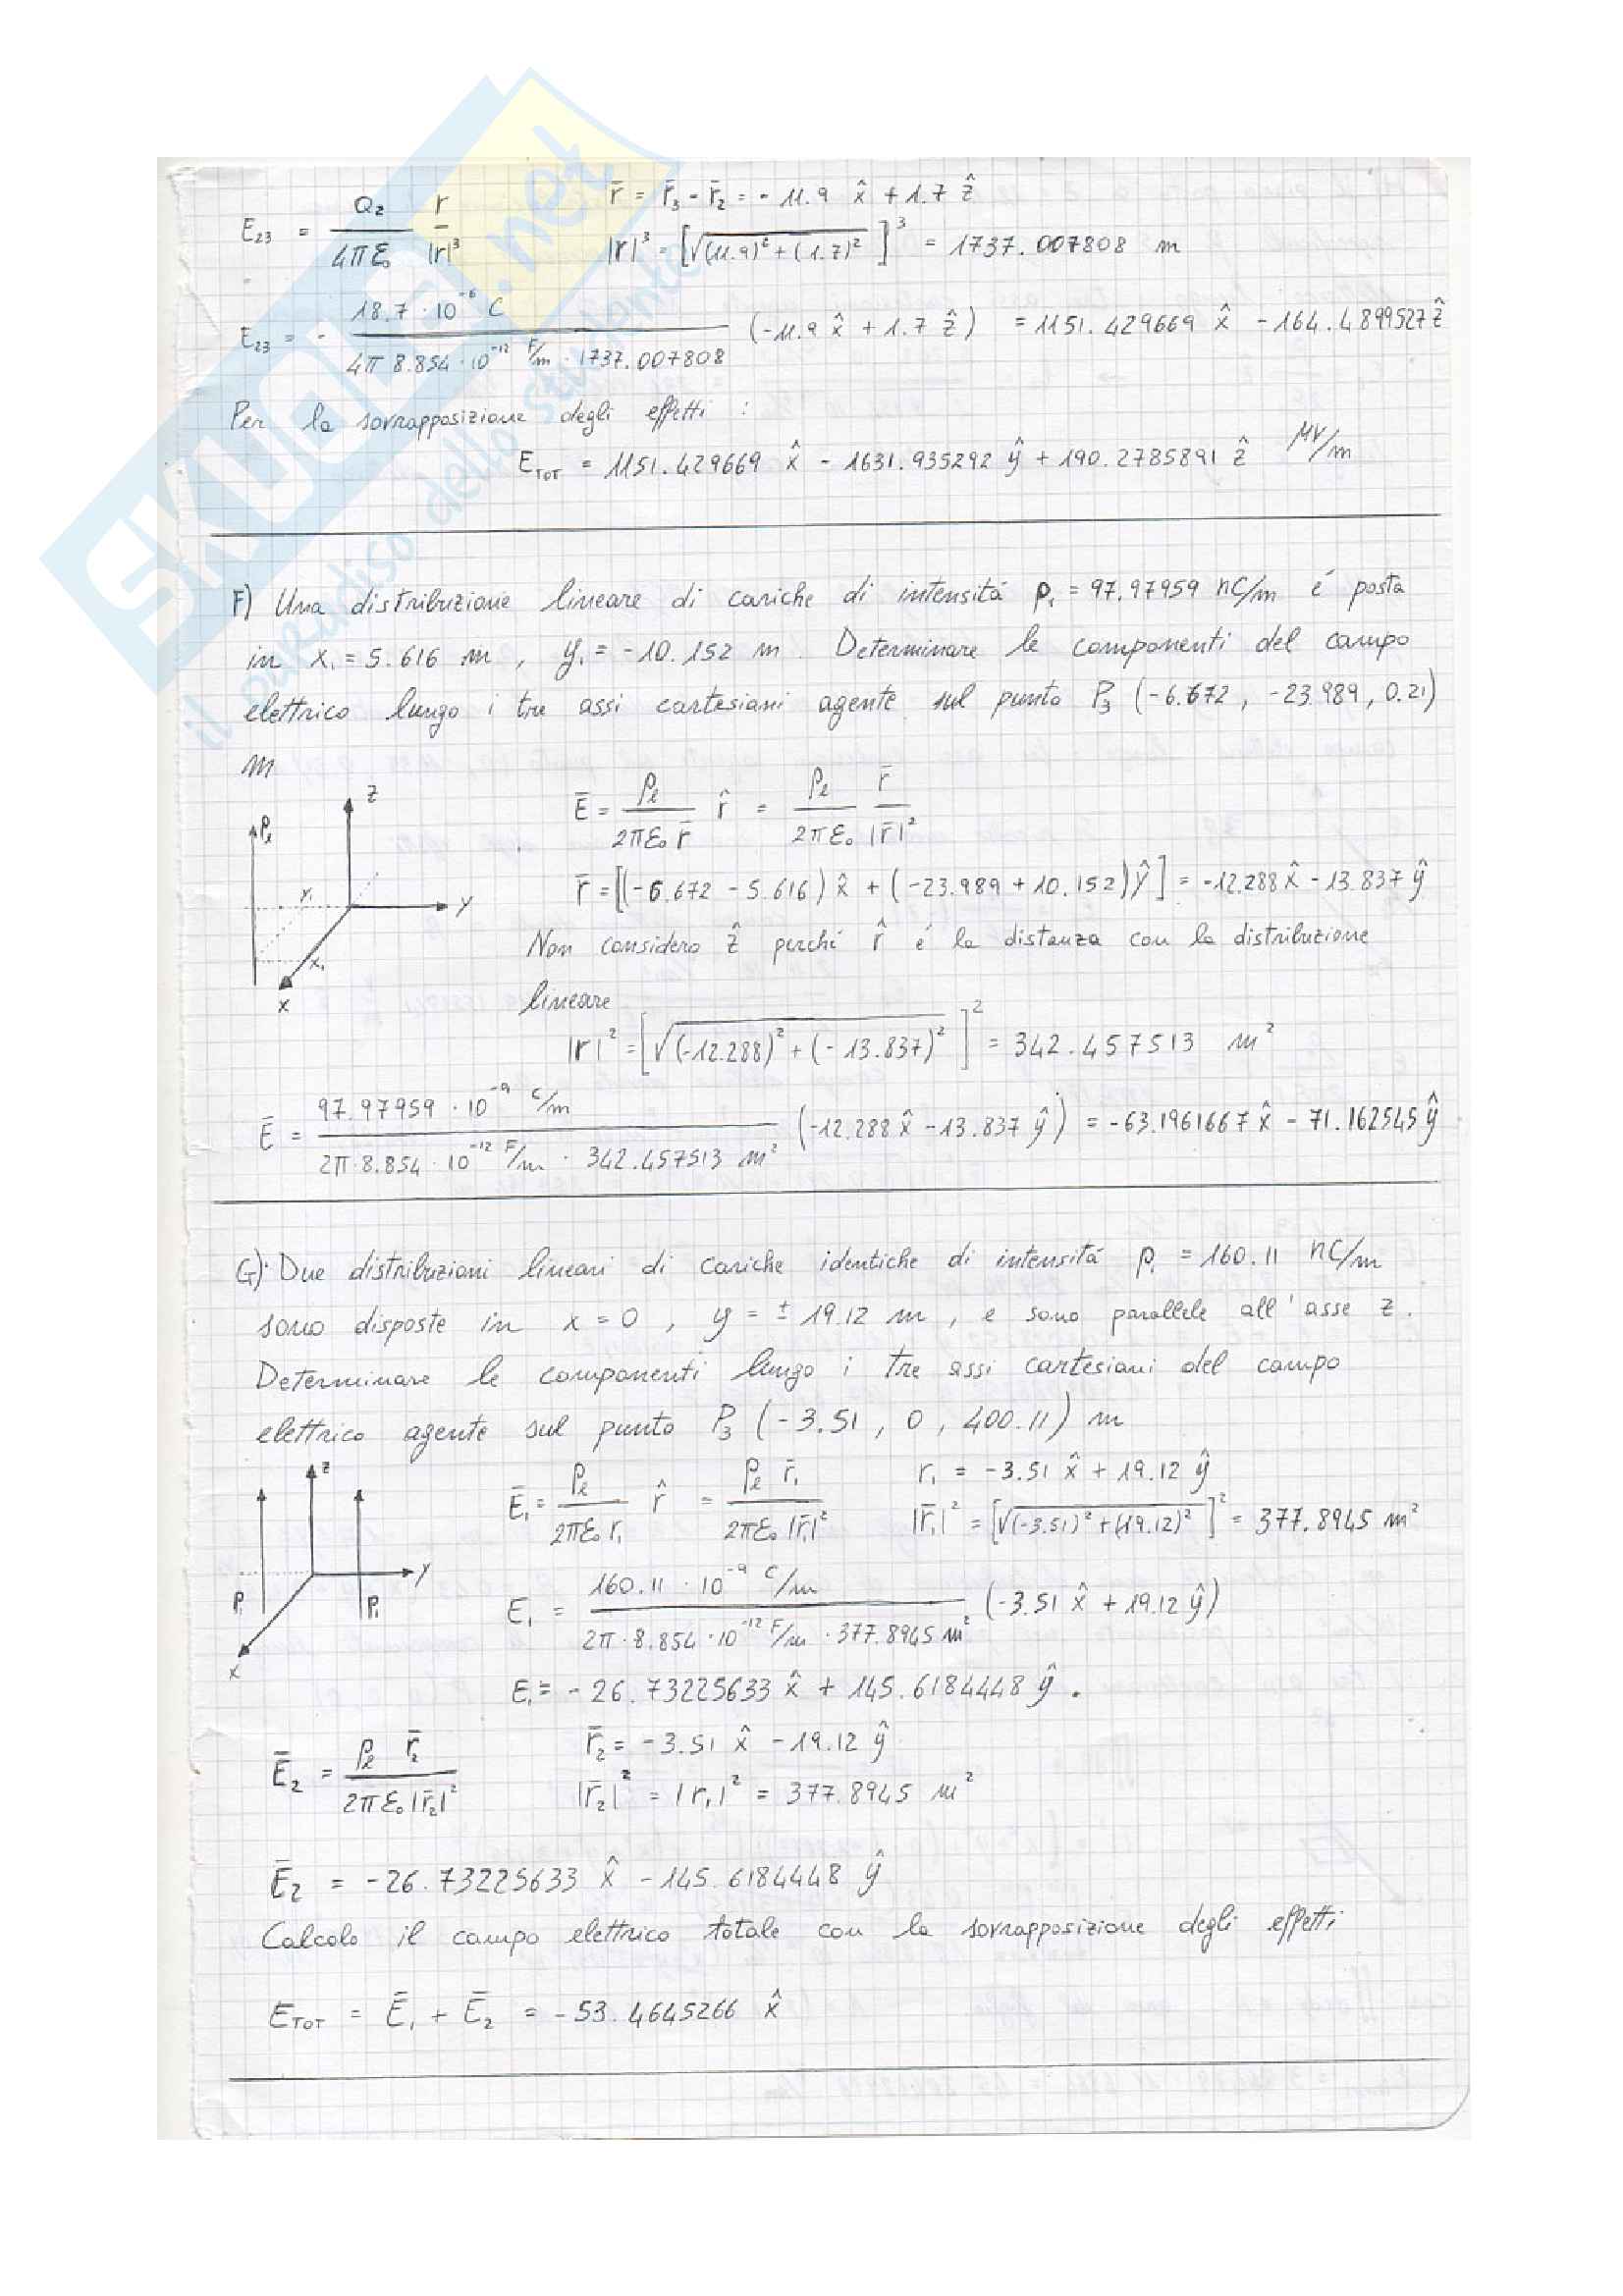 E₂₃ = Q₂/(4πε₀) r/|r|³   r̄ = r̄₃ - r̄₂ = - 11.9 x̂ + 1.7 ẑ
|r|³ = [√((11.9)² + (1.7)²)]³ = 1737.007808 m
E₂₃ = - 18.7 · 10⁻⁶ C / (4π 8.854 · 10⁻¹² F/m · 1737.007808) (-11.9 x̂ + 1.7 ẑ) = 1151.429669 x̂ - 164.4899527 ẑ
Per la sovrapposizione degli effetti :
E_TOT = 1151.429669 x̂ - 1631.935292 ŷ + 190.2785891 ẑ μV/m
F) Una distribuzione lineare di cariche di intensitá ρ₁ = 97.97959 nC/m é posta
in x₁ = 5.616 m , y₁ = -10.152 m . Determinare le componenti del campo
elettrico lungo i tre assi cartesiani agente sul punto P₃ (-6.672 , -23.989 , 0.21)
m
z
ρₗ
y₁
y
x₁
x
Ē = ρₗ/(2πε₀ r̄) r̂ = ρₗ/(2πε₀) r̄/|r̄|²
r̄ = [(-6.672 - 5.616) x̂ + (-23.989 + 10.152) ŷ] = -12.288 x̂ - 13.837 ŷ
Non considero ẑ perché r̂ é la distanza con la distribuzione
lineare
|r|² = [√((-12.288)² + (-13.837)²)]² = 342.457513 m²
Ē = 97.97959 · 10⁻⁹ C/m / (2π · 8.854 · 10⁻¹² F/m · 342.457513 m²) (-12.288 x̂ - 13.837 ŷ) = -63.1961667 x̂ - 71.162545 ŷ
G) Due distribuzioni lineari di cariche identiche di intensitá ρ₁ = 160.11 nC/m
sono disposte in x = 0 , y = ± 19.12 m , e sono parallele all' asse z .
Determinare le componenti lungo i tre assi cartesiani del campo
elettrico agente sul punto P₃ (-3.51 , 0 , 400.11) m
z
y
ρ₁ ρ₁
x
Ē₁ = ρₗ/(2πε₀ r₁) r̂ = ρₗ r̄₁/(2πε₀ |r̄₁|²)   r₁ = -3.51 x̂ + 19.12 ŷ
|r̄₁|² = [√((-3.51)² + (19.12)²)]² = 377.8945 m²
E₁ = 160.11 · 10⁻⁹ C/m / (2π · 8.854 · 10⁻¹² F/m · 377.8945 m²) (-3.51 x̂ + 19.12 ŷ)
E₁ = - 26.73225633 x̂ + 145.6184448 ŷ .
Ē₂ = ρₗ r̄₂/(2πε₀ |r̄₂|²)   r̄₂ = -3.51 x̂ - 19.12 ŷ
|r̄₂|² = |r₁|² = 377.8945 m²
Ē₂ = -26.73225633 x̂ - 145.6184448 ŷ
Calcolo il campo elettrico totale con la sovrapposizione degli effetti
E_TOT = Ē₁ + Ē₂ = -53.4645266 x̂
SKUOLA.net
il paradiso dello studente